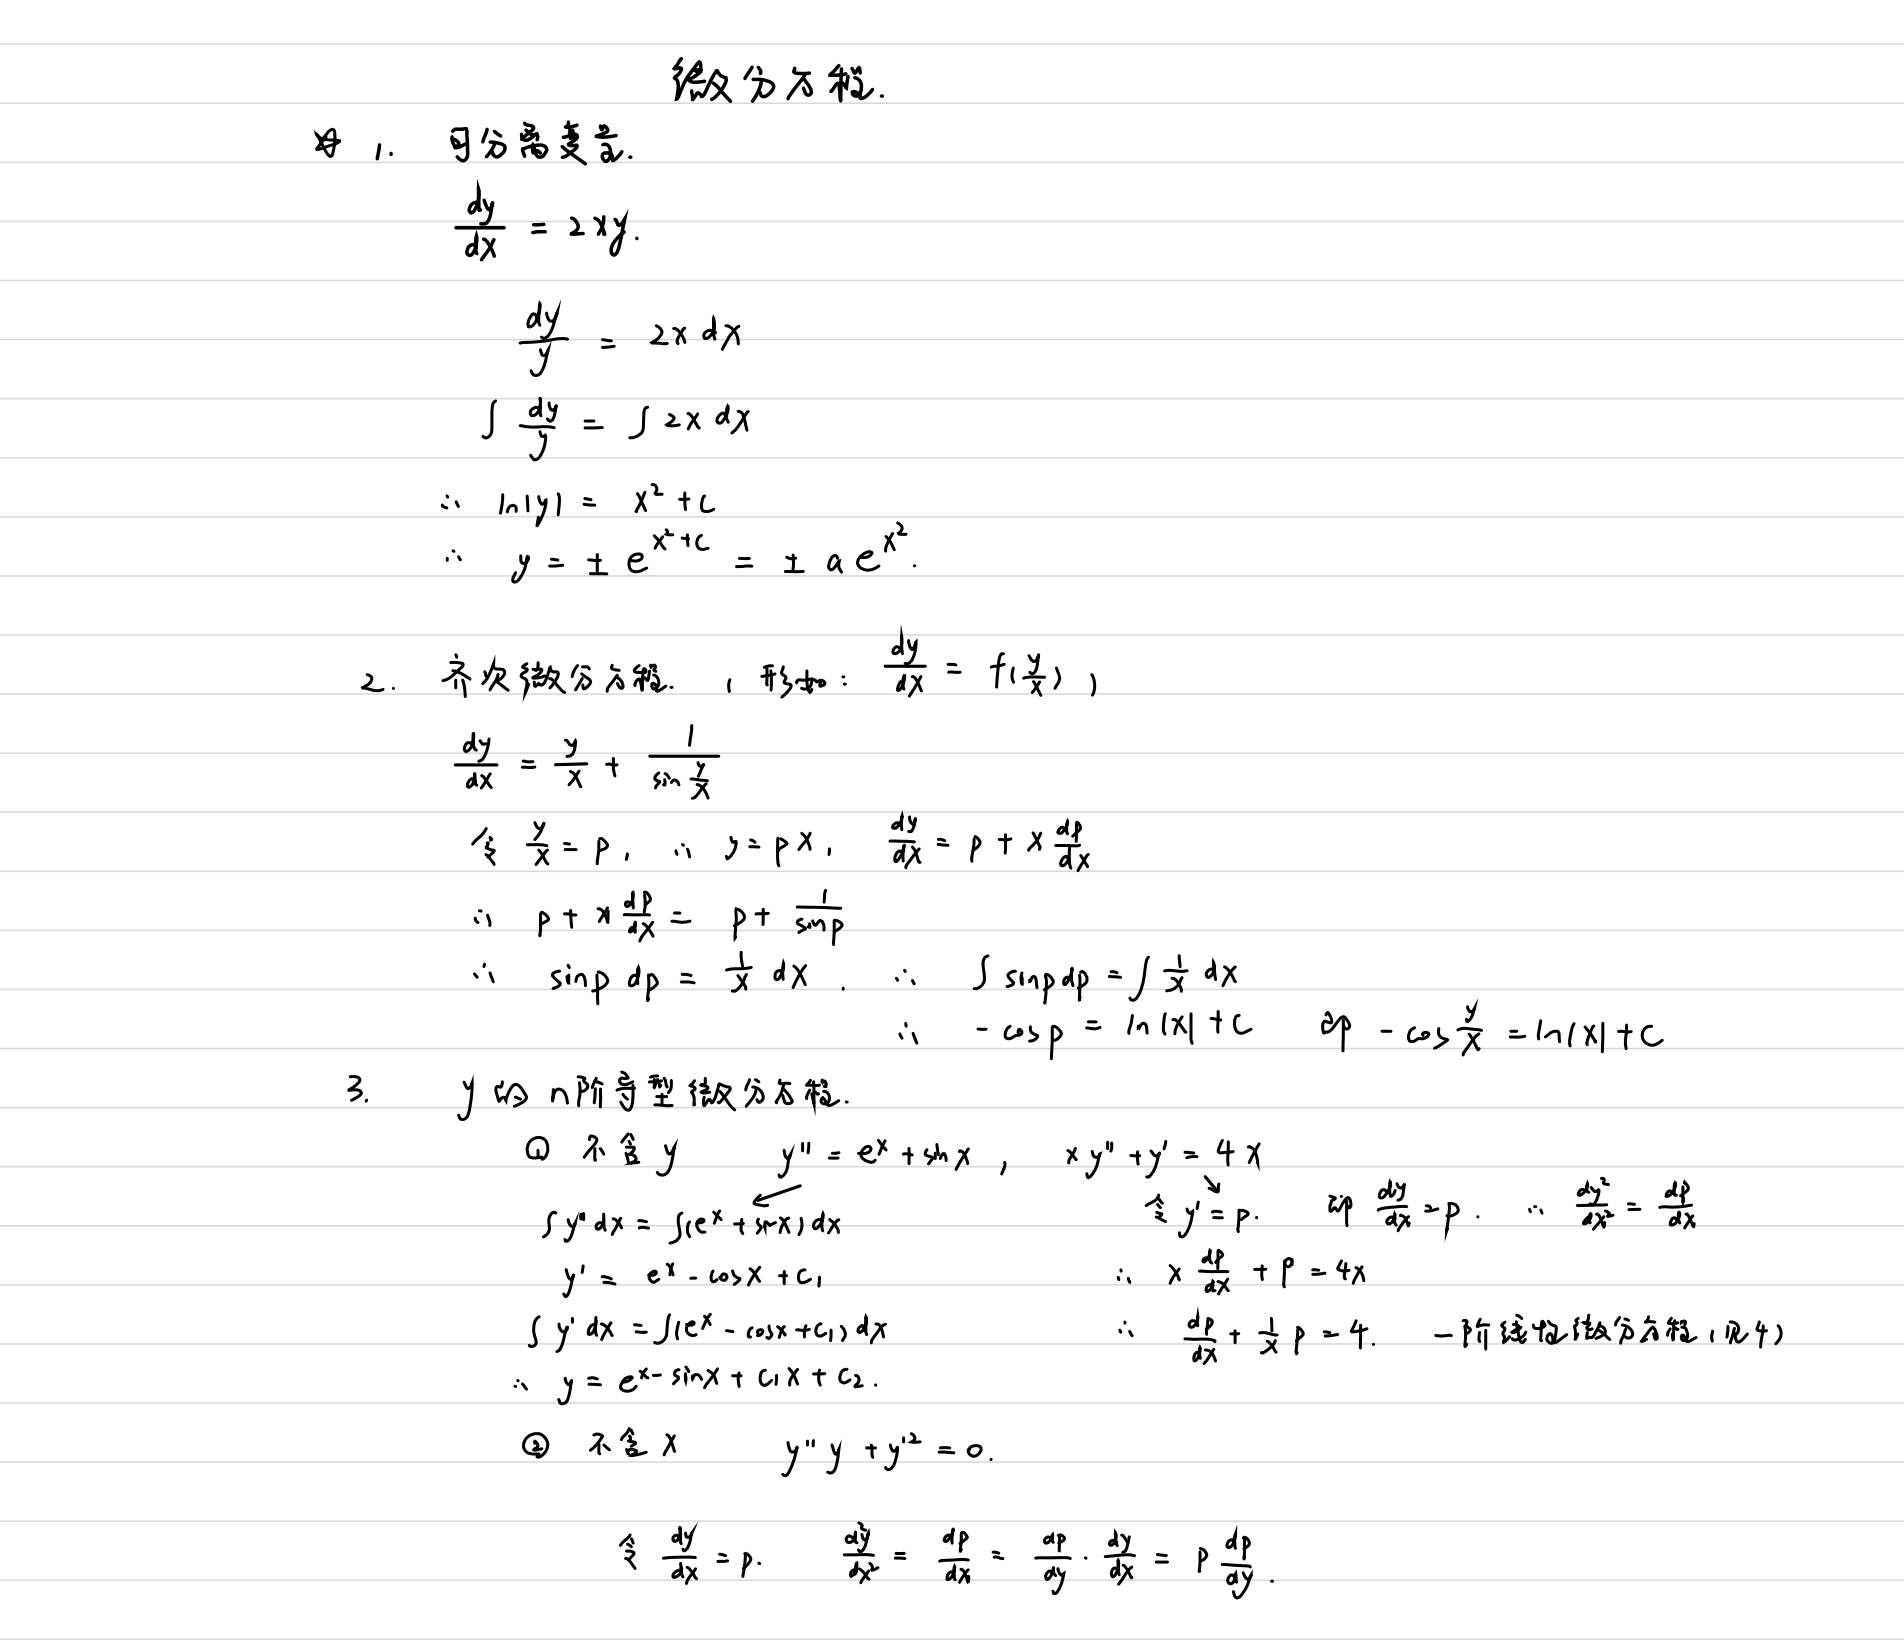 微分方程.
☆ 1. 可分离变量.
dy/dx = 2xy.
dy/y = 2x dx
∫ dy/y = ∫ 2x dx
∴ ln|y| = x² + c
∴ y = ± e^(x²+c) = ± a e^(x²).
2. 齐次微分方程. (形如: dy/dx = f(y/x))
dy/dx = y/x + 1/(sin y/x)
令 y/x = p, ∴ y = px, dy/dx = p + x dp/dx
∴ p + x dp/dx = p + 1/sinp
∴ sinp dp = 1/x dx. ∴ ∫ sinp dp = ∫ 1/x dx
∴ -cosp = ln|x| + c 即 -cos y/x = ln|x| + c
3. y的n阶导型微分方程.
① 不含y y'' = e^x + sinx, xy'' + y' = 4x
∫ y'' dx = ∫(e^x + sinx) dx 令 y' = p. 即 dy/dx = p. ∴ dy²/dx² = dp/dx
y' = e^x - cosx + c₁ ∴ x dp/dx + p = 4x
∫ y' dx = ∫(e^x - cosx + c₁) dx ∴ dp/dx + 1/x p = 4. 一阶线性微分方程(见4)
∴ y = e^x - sinx + c₁x + c₂.
② 不含x y''y + y'² = 0.
令 dy/dx = p. d²y/dx² = dp/dx = dp/dy · dy/dx = p dp/dy.